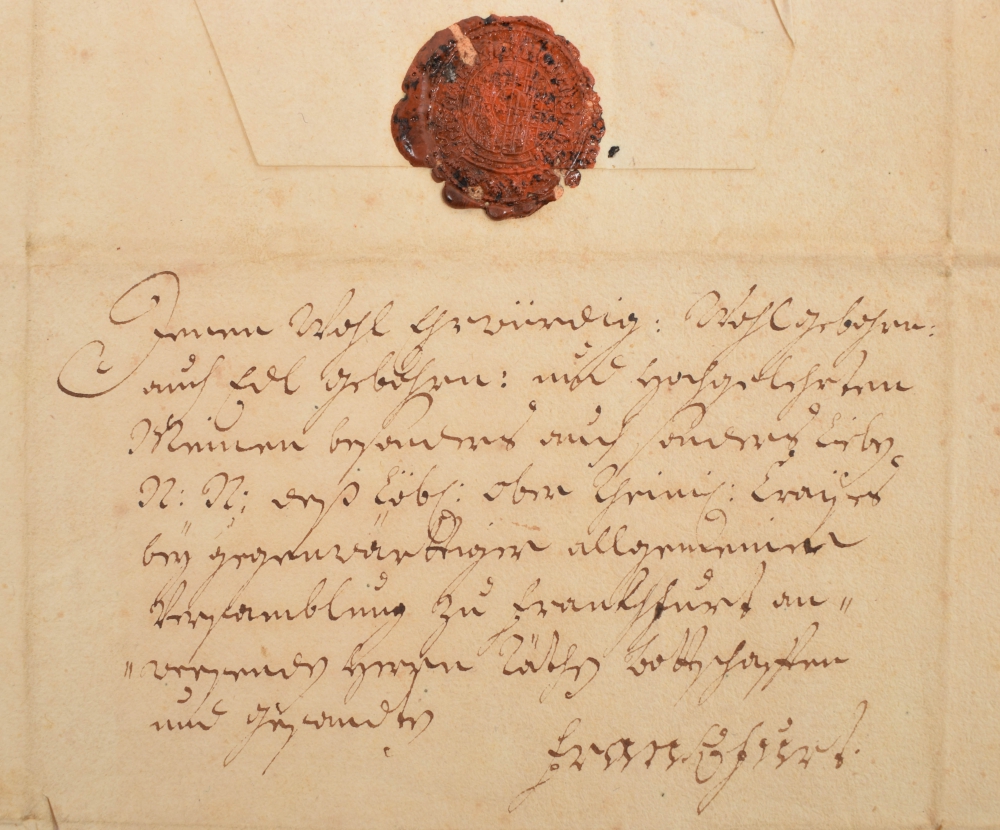 Denen Wohl Ehrwürdig: Wohlgebohrn:
auch Edl gebohrn: und Hochgelehrten
Meinen besonders auch sonders Lieben
N: N: deß Löbl: Ober Rheinis: Crayses
bey gegenwärttiger allgemeiner
Versamblung zu Franckhfurt an„
„weesenden Herrn Räthen Bottschafften
und gesandten
Franckhfurt.